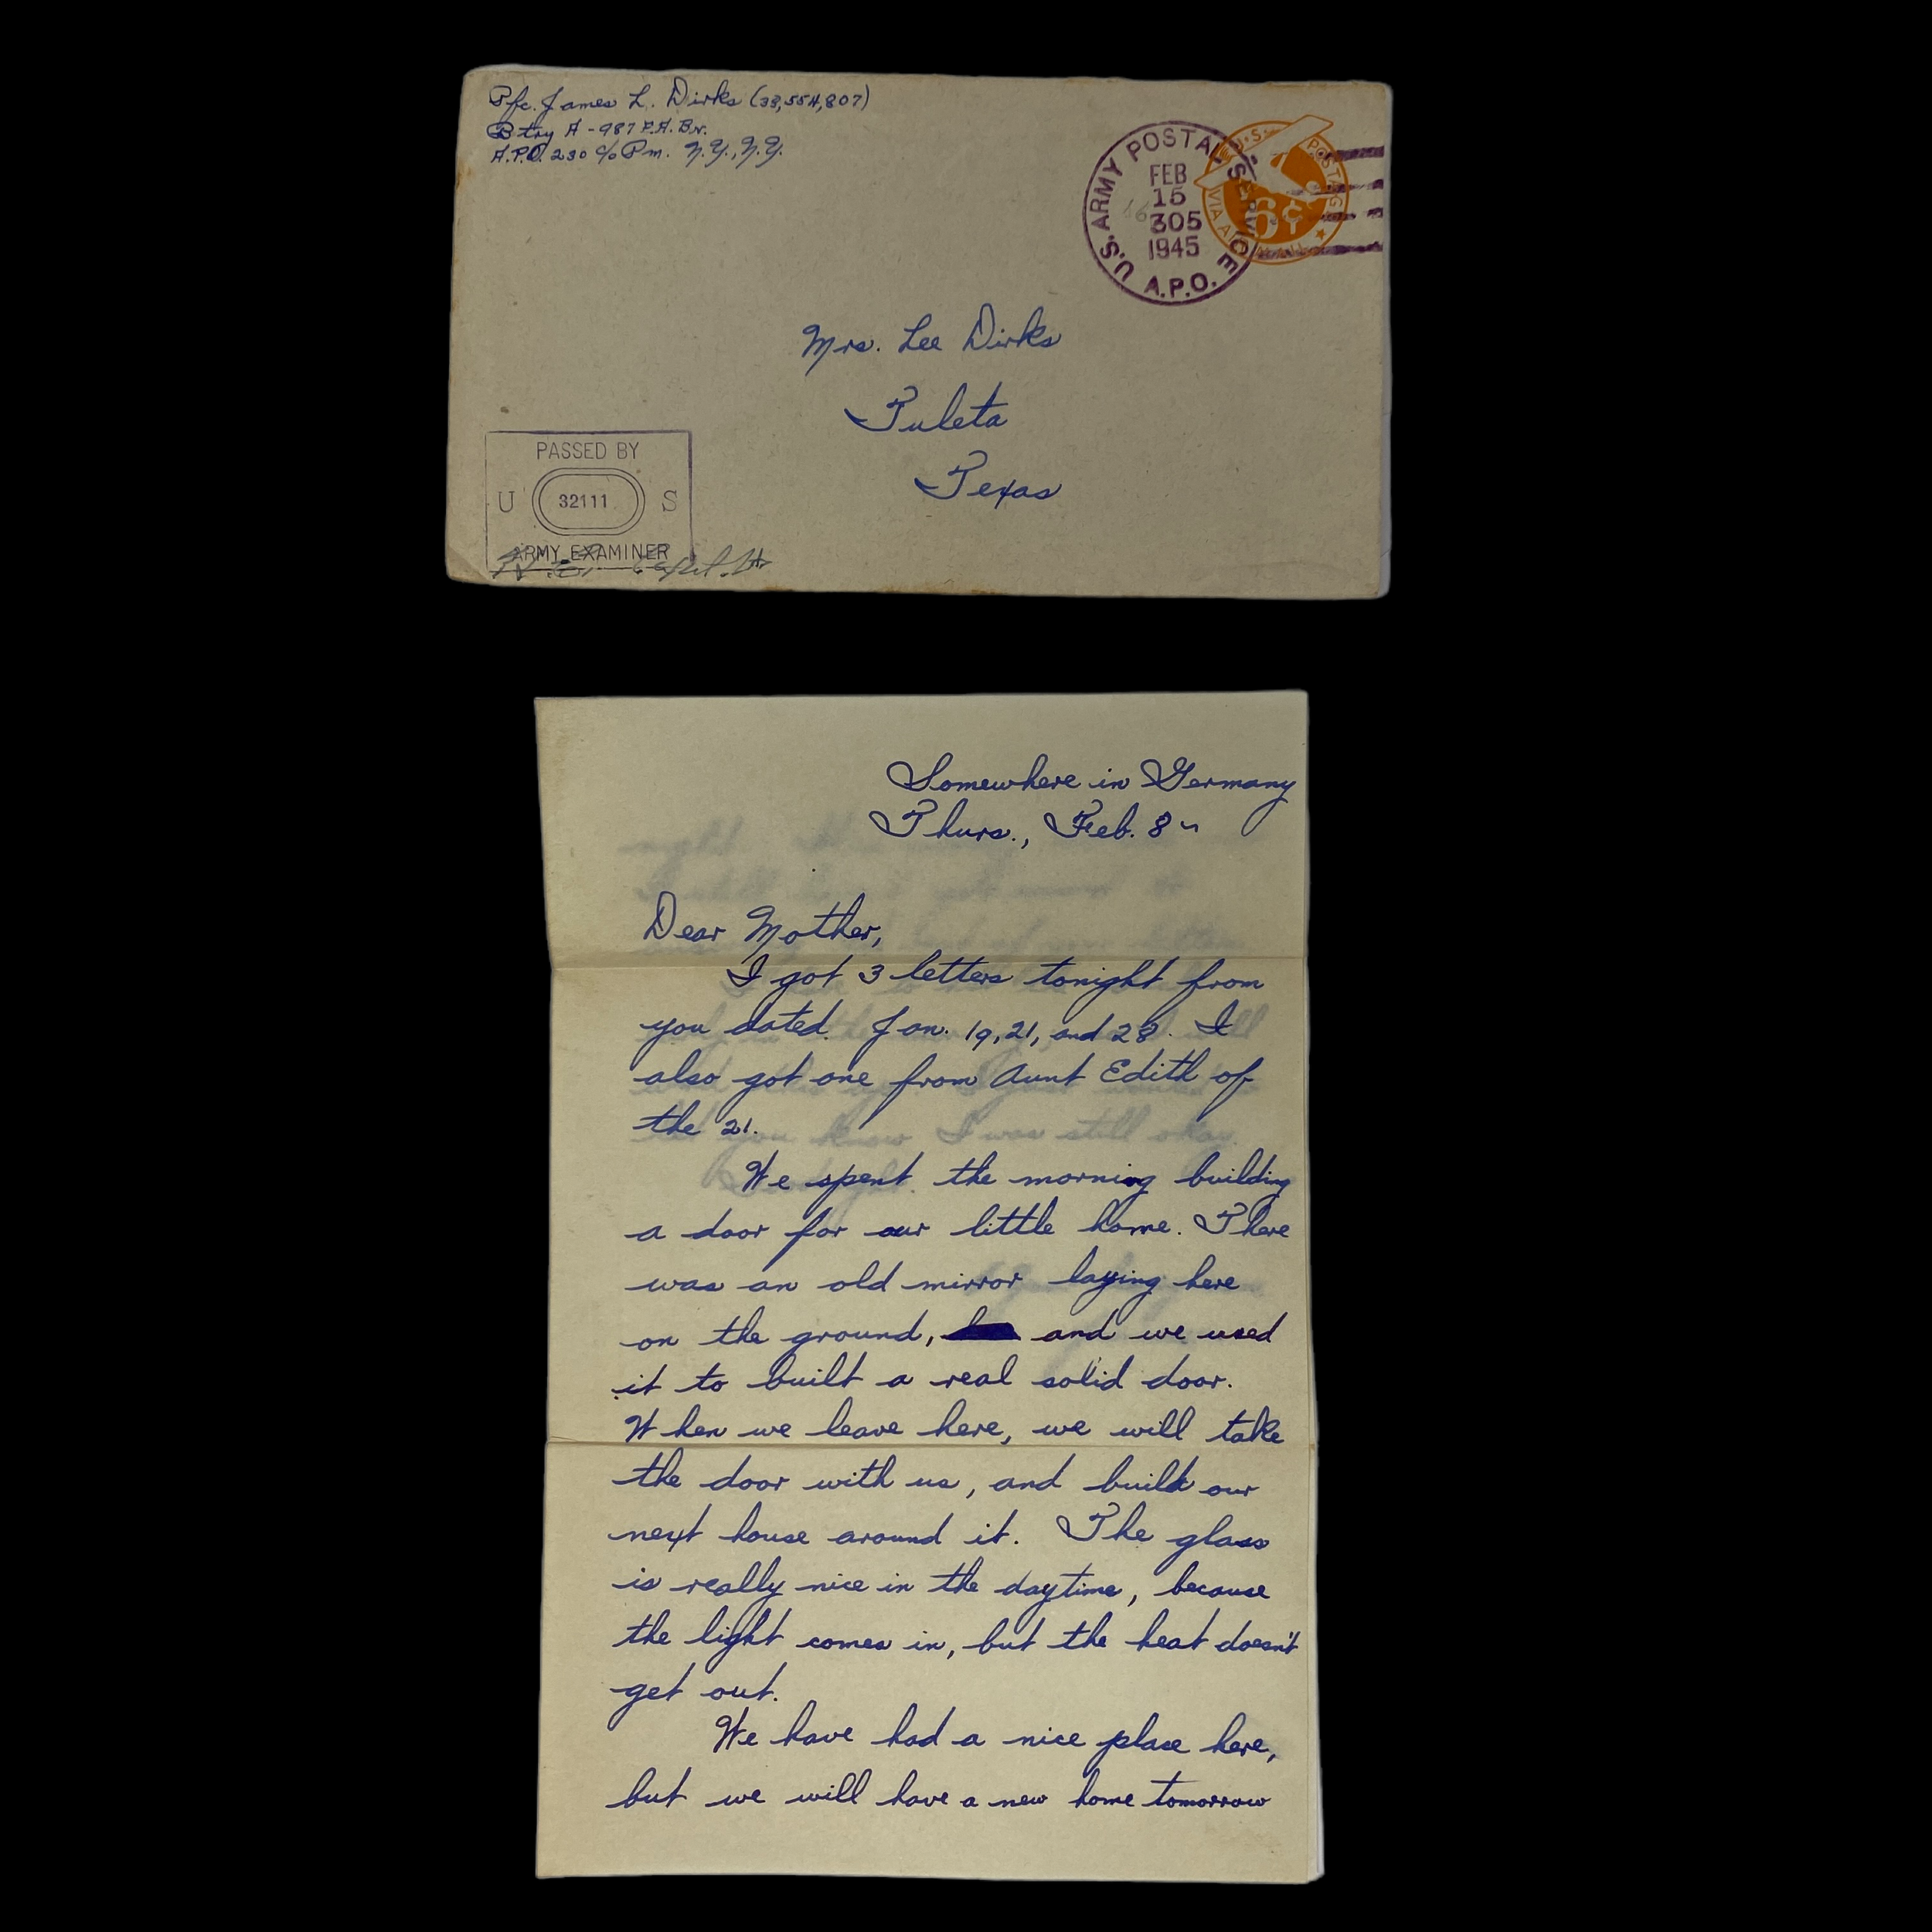 Pfc. James L. Dirks (38,554,807)
Btry A - 987 F.A. Bn.
A.P.O. 230 c/o Pm. N.Y., N.Y.
U.S. ARMY POSTAL SERVICE
A.P.O.
FEB
15
305
1945
U.S. POSTAGE
VIA AIR MAIL
6¢
Mrs. Lee Dirks
Tuleta
Texas
PASSED BY
U 32111 S
ARMY EXAMINER
Somewhere in Germany
Thurs., Feb. 8 ~
Dear Mother,
I got 3 letters tonight from
you dated Jan. 19, 21, and 28. I
also got one from Aunt Edith of
the 21.
We spent the morning building
a door for our little home. There
was an old mirror laying here
on the ground, and we used
it to built a real solid door.
When we leave here, we will take
the door with us, and build our
next house around it. The glass
is really nice in the daytime, because
the light comes in, but the heat doesn't
get out.
We have had a nice place here,
but we will have a new home tomorrow